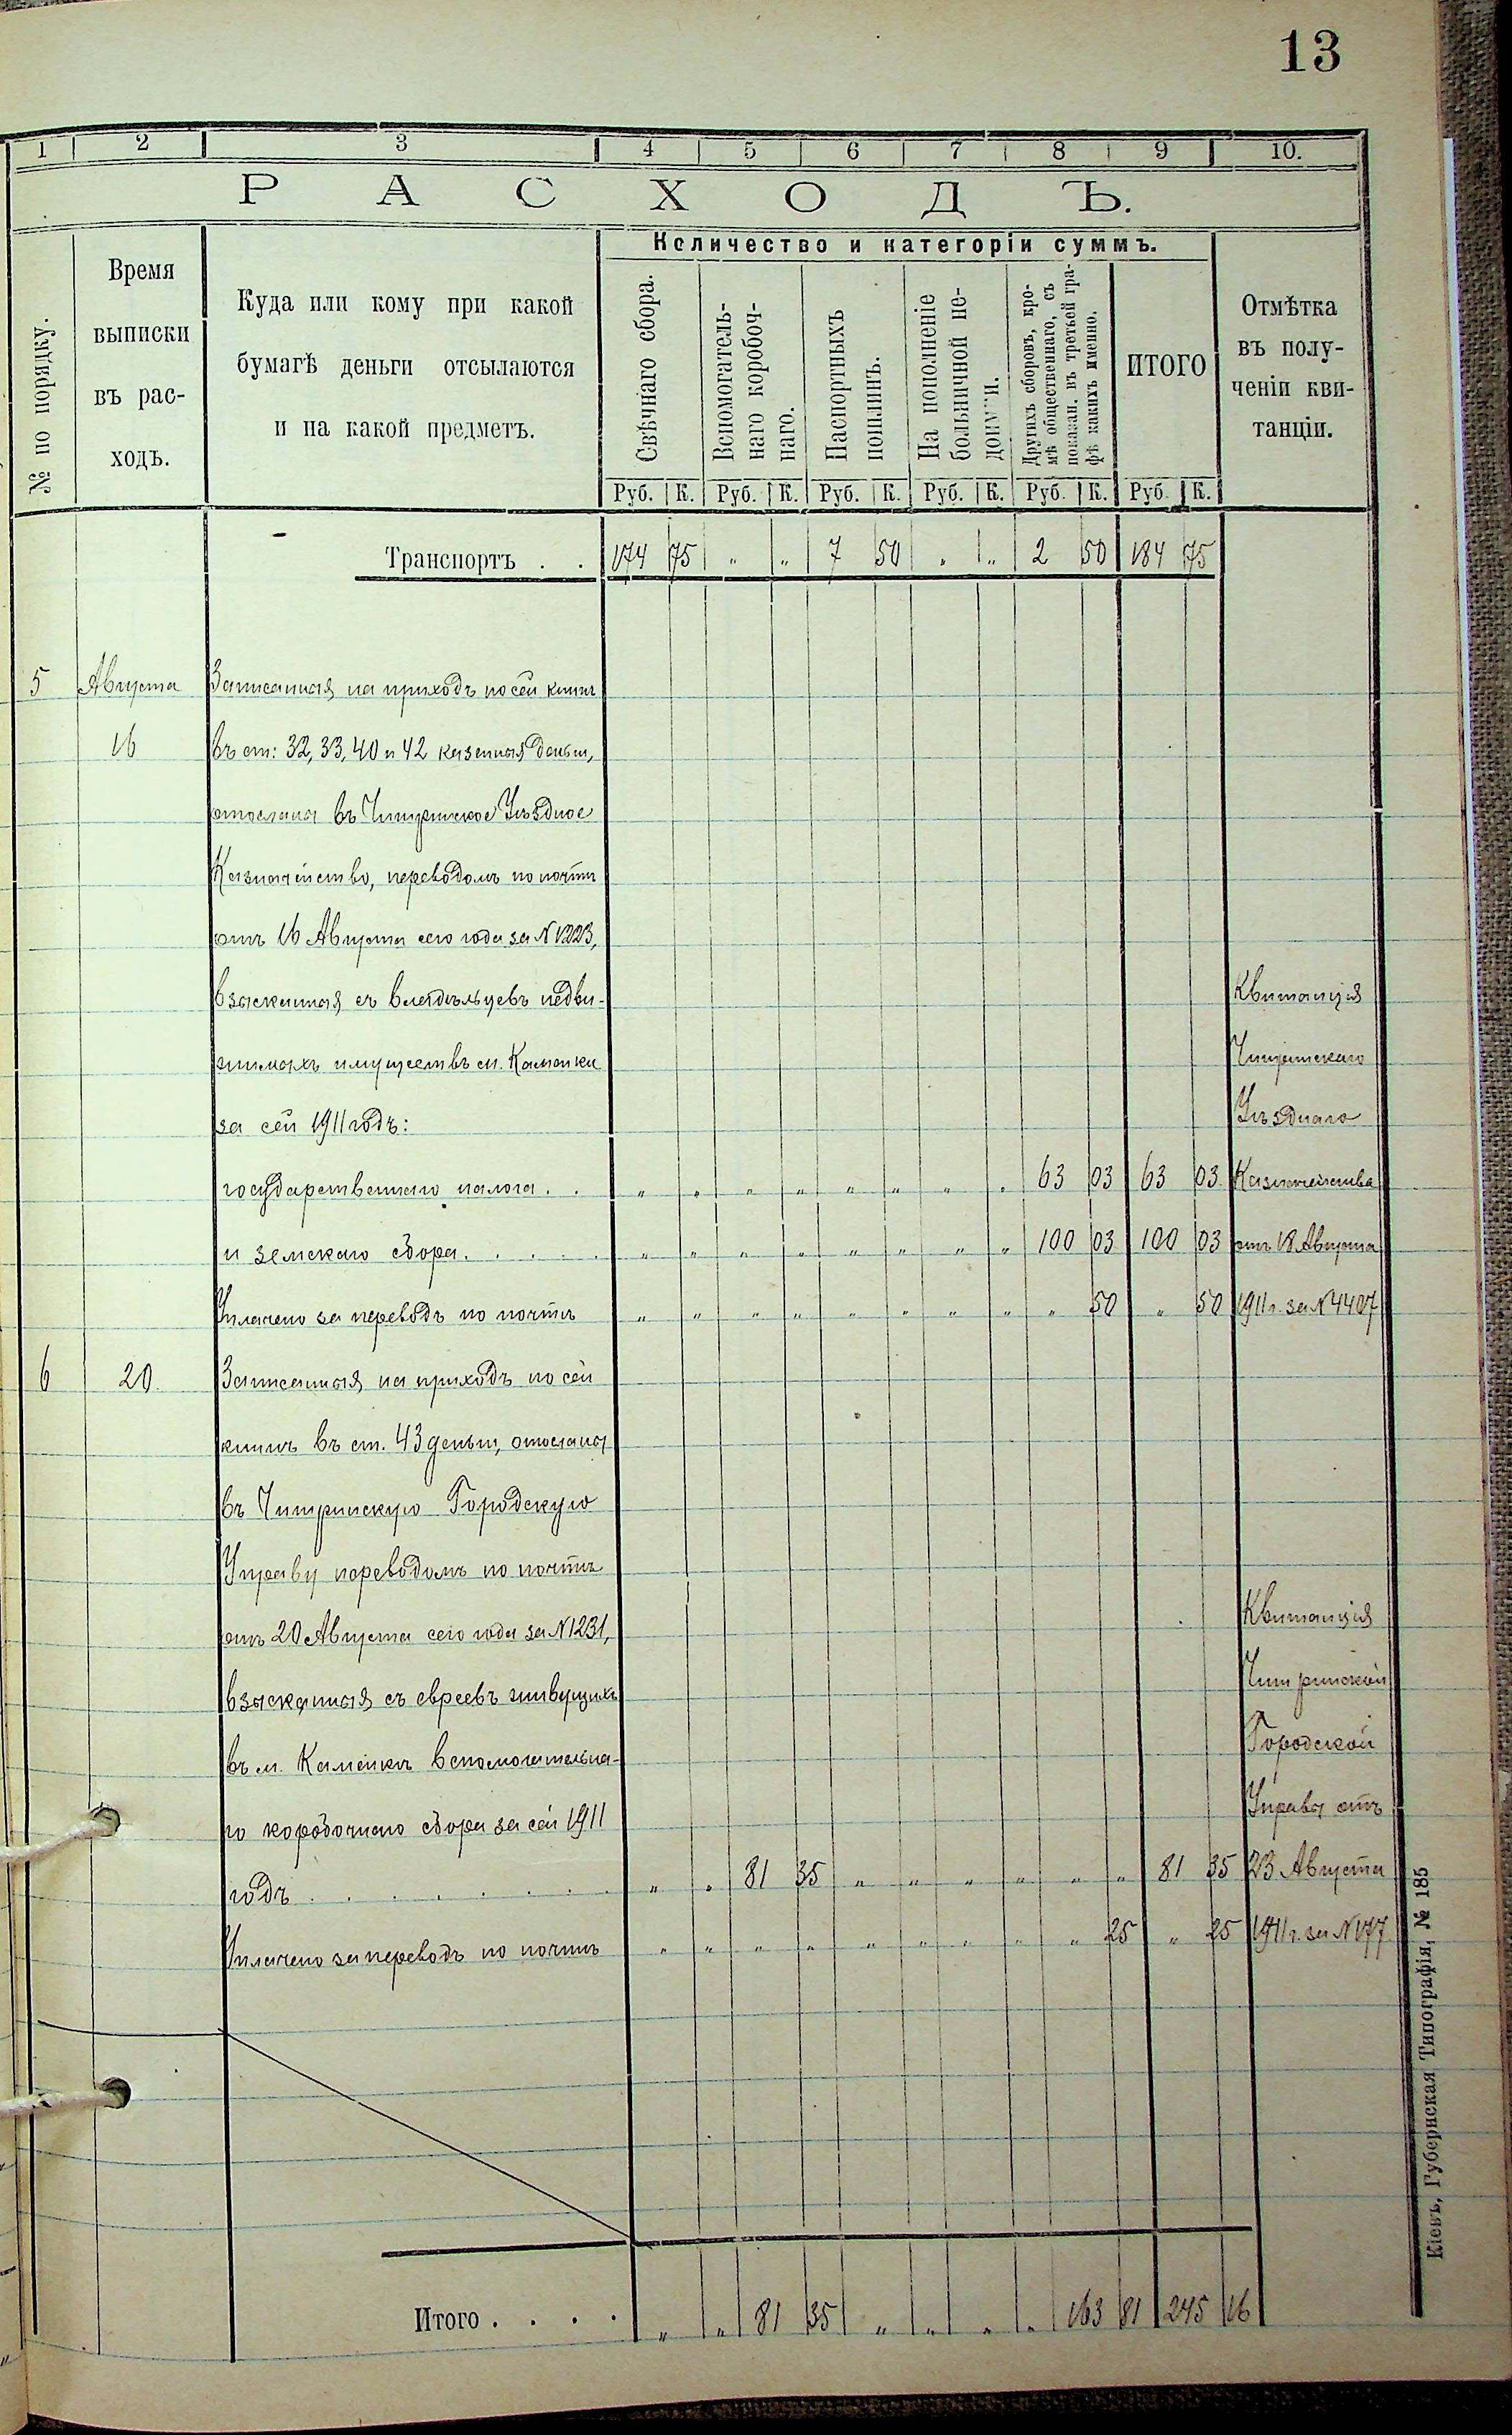 13
1 2 3 4 5 6 7 8 9 10.
РАСХОДЪ.
№ по порядку.
Время
выписки
въ рас-
ходъ.
Куда или кому при какой
бумагѣ деньги отсылаются
и на какой предметъ.
Количество и категоріи суммъ.
Свѣчнаго сбора.
Вспомогатель-
наго коробоч-
наго.
Паспортныхъ
пошлинъ.
На пополненіе
больничной не-
доимки.
Другихъ сборовъ, кро-
мѣ общественнаго, съ
показан. въ третьей гра-
фѣ какихъ именно.
ИТОГО
Отмѣтка
въ полу-
ченіи кви-
танціи.
Руб. К. Руб. К. Руб. К. Руб. К. Руб. К. Руб. К.
Транспортъ . . 174 75 " " 7 50 " " 2 50 184 75
5 Августа Записанныя на приходъ по сей книгѣ
16 въ ст: 32, 33, 40 и 42 казенныя деньги,
отосланы въ Чигиринское Уѣздное
Казначейство, переводомъ по почтѣ
отъ 16 Августа сего года за N 1223,
взысканныя съ владѣльцевъ недви- Квитанція
жимыхъ имуществъ м. Каменки Чигиринскаго
за сей 1911 годъ: Уѣзднаго
государственнаго налога . . " " " " " " " " 63 03 63 03 Казначейства
и земскаго сбора . . . . . " " " " " " " " 100 03 100 03 отъ 18 Августа
Уплачено за переводъ по почтѣ " " " " " " " " " 50 " 50 1911 г. за N 4407
6 20 Записанныя на приходъ по сей
книгѣ въ ст. 43 деньги, отосланы
въ Чигиринскую Городскую
Управу переводомъ по почтѣ
отъ 20 Августа сего года за N 1231, Квитанція
взысканныя съ евреевъ живущихъ Чигиринской
въ м. Каменкѣ вспомогательна- Городской
го коробочнаго сбора за сей 1911 Управы отъ
годъ . . . . . . . " " 81 35 " " " " " " 81 35 23 Августа
Уплачено за переводъ по почтѣ " " " " " " " " " 25 " 25 1911 г. за N 177
Итого . . . . " " 81 35 " " " " 163 81 245 16
Кіевъ, Губернская Типографія, № 185